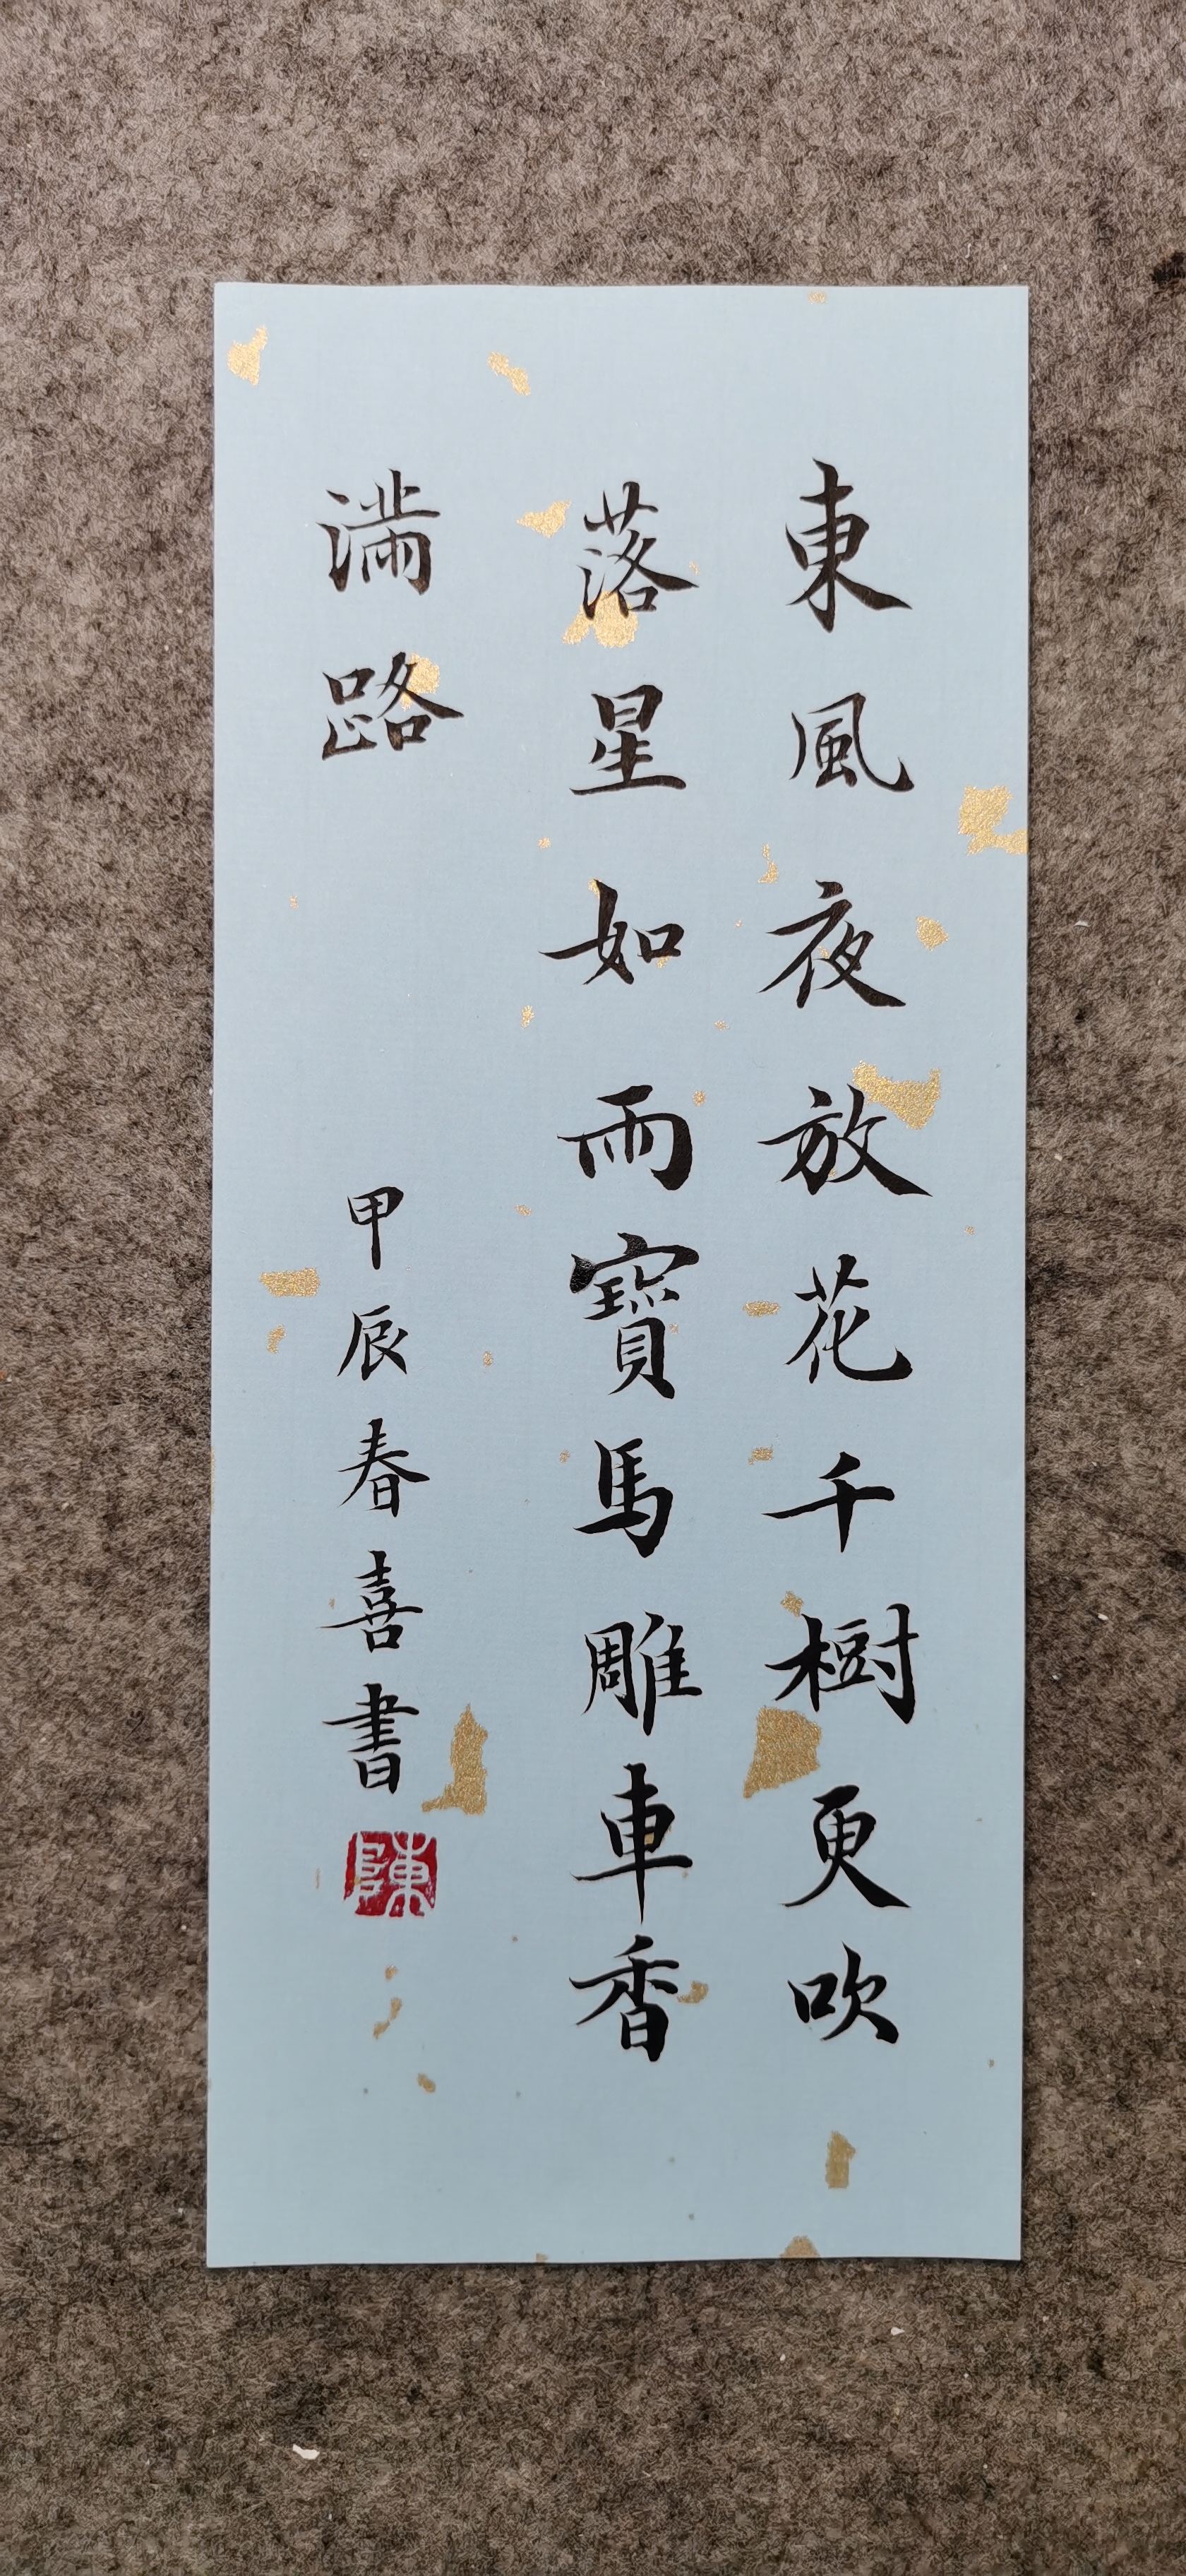 東風夜放花千樹更吹
落星如雨寶馬雕車香
滿路
甲辰春喜書
陳